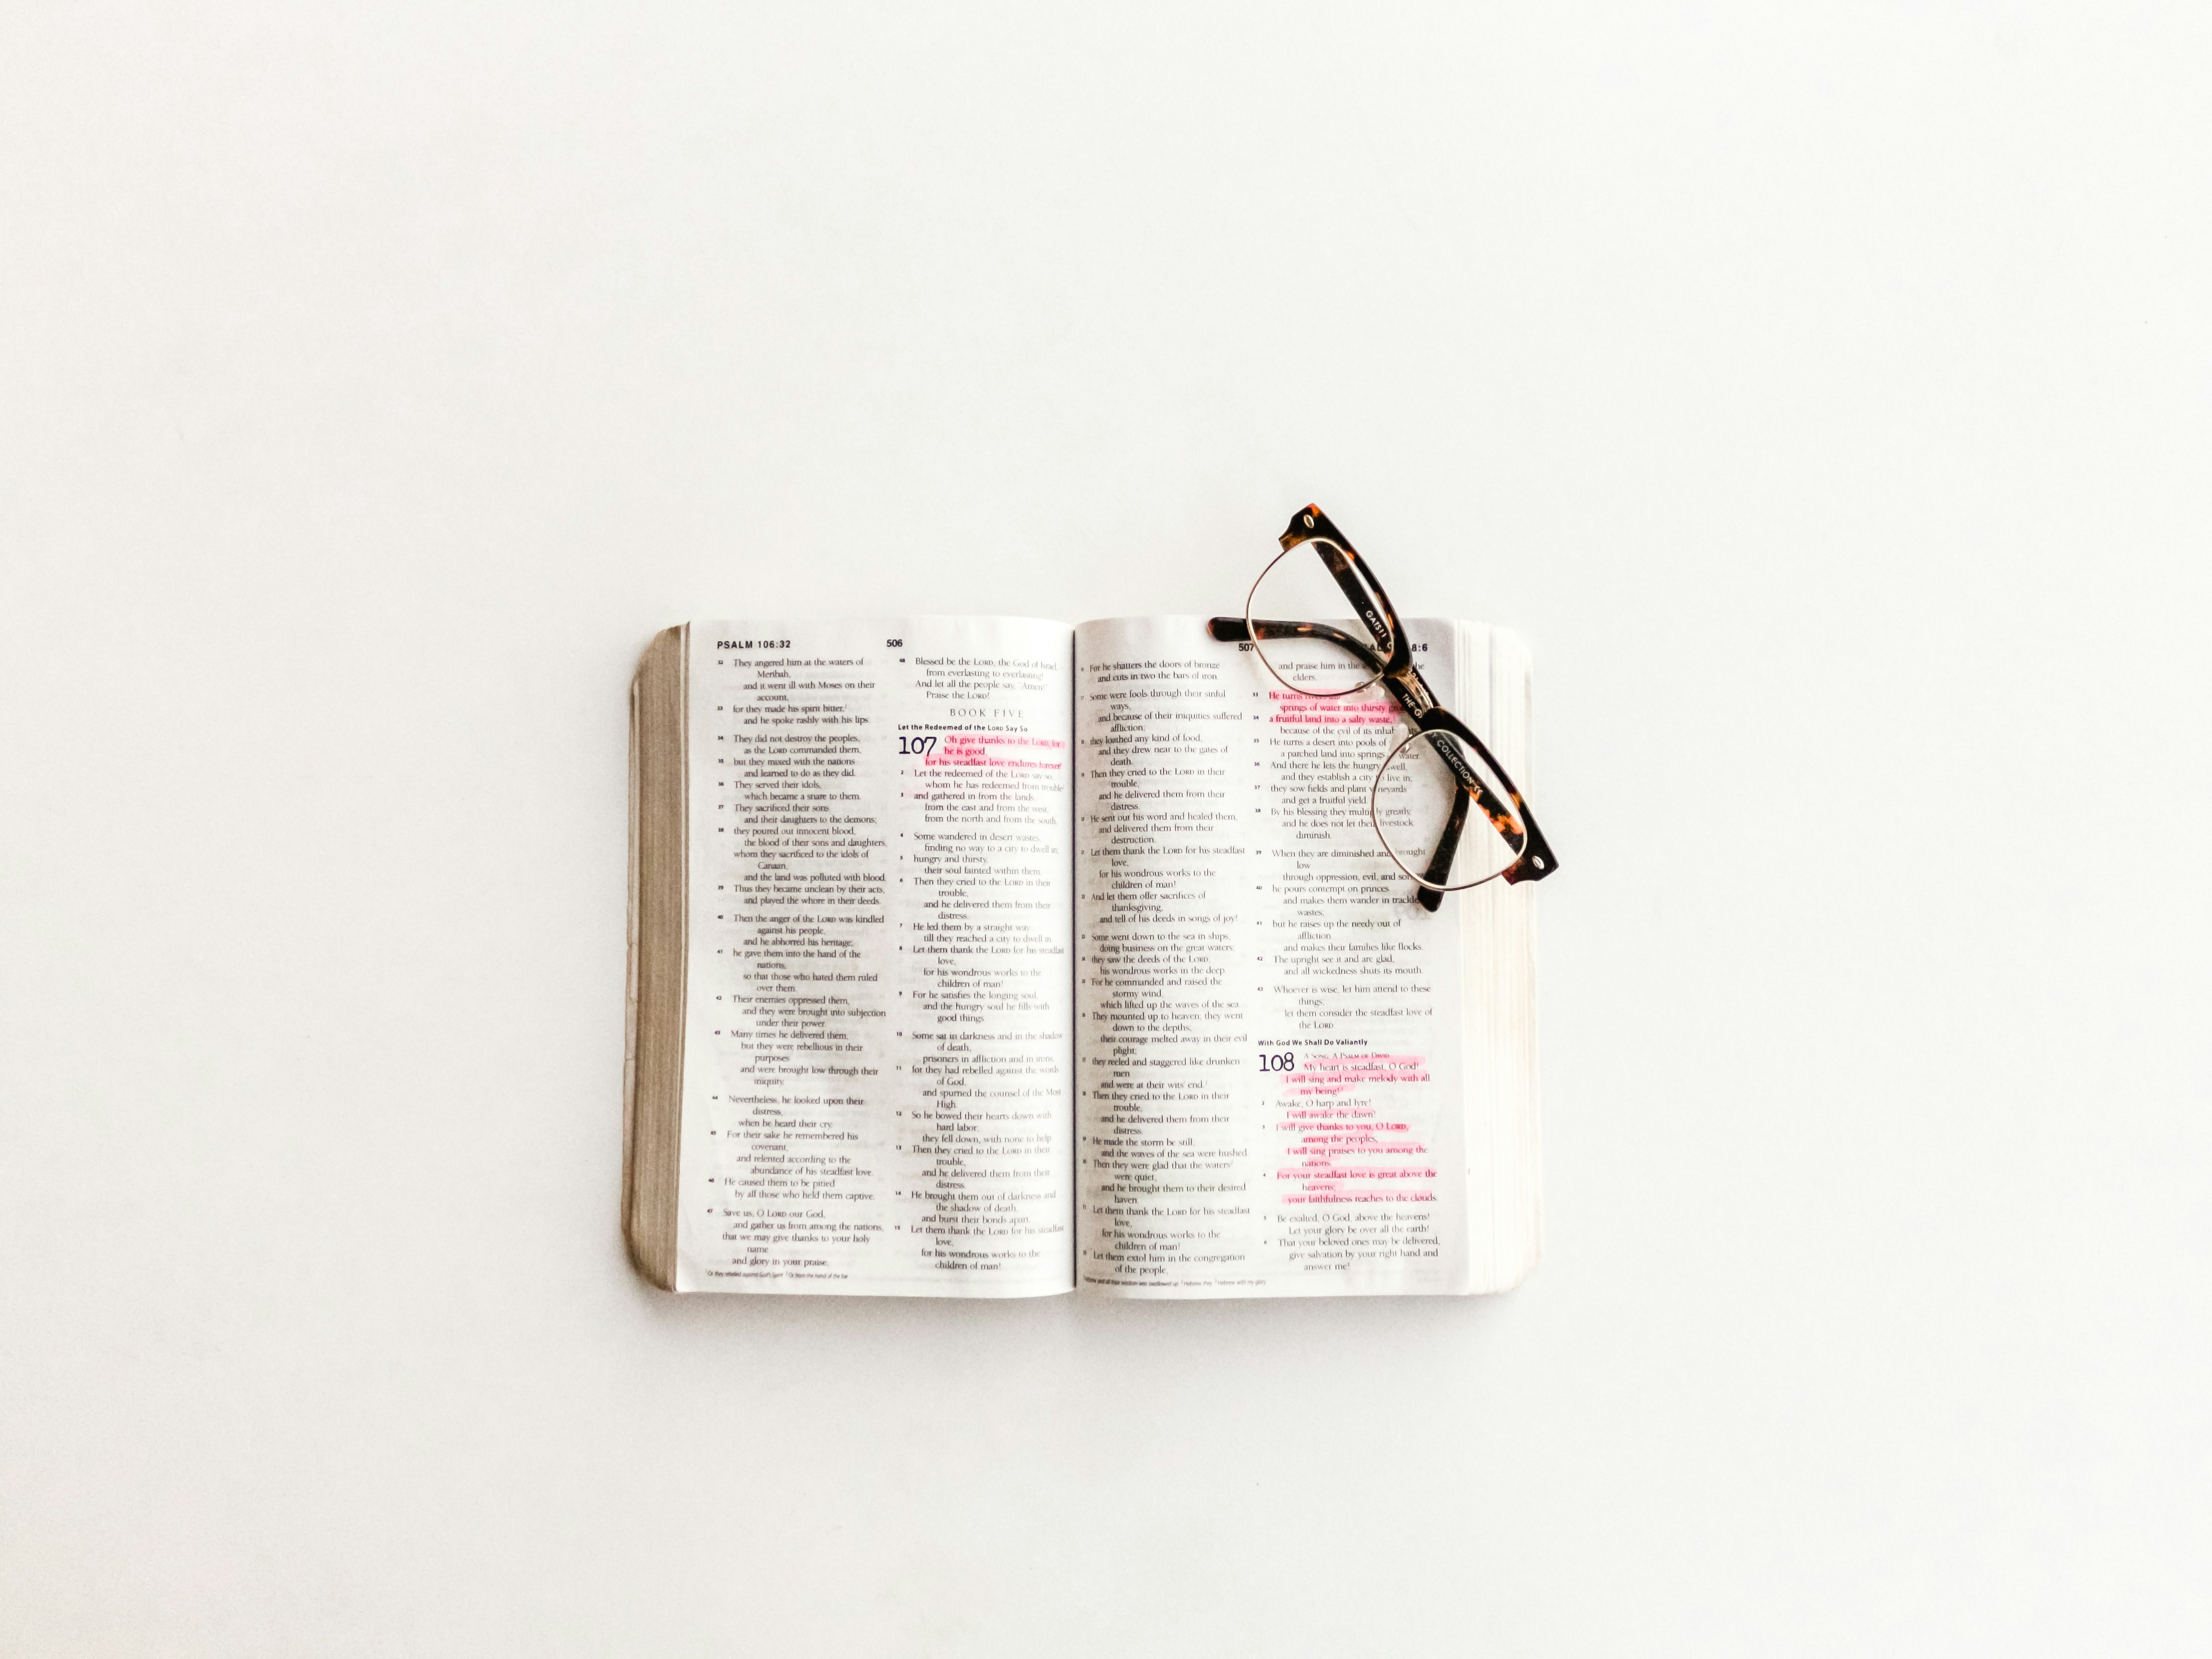 PSALM 106:32
506
32 They angered him at the waters of
Meribah,
and it went ill with Moses on their
account,
33 for they made his spirit bitter,
and he spoke rashly with his lips.
34 They did not destroy the peoples,
as the LORD commanded them,
35 but they mixed with the nations
and learned to do as they did.
36 They served their idols,
which became a snare to them.
37 They sacrificed their sons
and their daughters to the demons;
38 they poured out innocent blood,
the blood of their sons and daughters,
whom they sacrificed to the idols of
Canaan,
and the land was polluted with blood.
39 Thus they became unclean by their acts,
and played the whore in their deeds.
40 Then the anger of the LORD was kindled
against his people,
and he abhorred his heritage;
41 he gave them into the hand of the
nations,
so that those who hated them ruled
over them.
42 Their enemies oppressed them,
and they were brought into subjection
under their power.
43 Many times he delivered them,
but they were rebellious in their
purposes
and were brought low through their
iniquity.
44 Nevertheless, he looked upon their
distress,
when he heard their cry.
45 For their sake he remembered his
covenant,
and relented according to the
abundance of his steadfast love.
46 He caused them to be pitied
by all those who held them captive.
47 Save us, O LORD our God,
and gather us from among the nations,
that we may give thanks to your holy
name
and glory in your praise.
48 Blessed be the LORD, the God of Israel,
from everlasting to everlasting!
And let all the people say, "Amen!"
Praise the LORD!
BOOK FIVE
Let the Redeemed of the LORD Say So
107 Oh give thanks to the LORD, for
he is good,
for his steadfast love endures forever!
2 Let the redeemed of the LORD say so,
whom he has redeemed from trouble
3 and gathered in from the lands,
from the east and from the west,
from the north and from the south.
4 Some wandered in desert wastes,
finding no way to a city to dwell in;
5 hungry and thirsty,
their soul fainted within them.
6 Then they cried to the LORD in their
trouble,
and he delivered them from their
distress.
7 He led them by a straight way
till they reached a city to dwell in.
8 Let them thank the LORD for his steadfast
love,
for his wondrous works to the
children of man!
9 For he satisfies the longing soul,
and the hungry soul he fills with
good things.
10 Some sat in darkness and in the shadow
of death,
prisoners in affliction and in irons,
11 for they had rebelled against the words
of God,
and spurned the counsel of the Most
High.
12 So he bowed their hearts down with
hard labor;
they fell down, with none to help.
13 Then they cried to the LORD in their
trouble,
and he delivered them from their
distress.
14 He brought them out of darkness and
the shadow of death,
and burst their bonds apart.
15 Let them thank the LORD for his steadfast
love,
for his wondrous works to the
children of man!
Or they rebelled against God's Spirit
507
8:6
For he shatters the doors of bronze
and cuts in two the bars of iron.
Some were fools through their sinful
ways,
and because of their iniquities suffered
affliction;
they loathed any kind of food,
and they drew near to the gates of
death.
Then they cried to the LORD in their
trouble,
and he delivered them from their
distress.
He sent out his word and healed them,
and delivered them from their
destruction.
Let them thank the LORD for his steadfast
love,
for his wondrous works to the
children of man!
And let them offer sacrifices of
thanksgiving,
and tell of his deeds in songs of joy!
Some went down to the sea in ships,
doing business on the great waters;
they saw the deeds of the LORD,
his wondrous works in the deep.
For he commanded and raised the
stormy wind,
which lifted up the waves of the sea.
They mounted up to heaven; they went
down to the depths;
their courage melted away in their evil
plight;
they reeled and staggered like drunken
men
and were at their wits' end.
Then they cried to the LORD in their
trouble,
and he delivered them from their
distress.
He made the storm be still,
and the waves of the sea were hushed.
Then they were glad that the waters
were quiet,
and he brought them to their desired
haven.
Let them thank the LORD for his steadfast
love,
for his wondrous works to the
children of man!
Let them extol him in the congregation
of the people,
and praise him in the
elders.
33 He turns
springs of water into thirsty
34 a fruitful land into a salty waste,
because of the evil of its
35 He turns a desert into pools of
a parched land into springs water.
36 And there he lets the hungry
and they establish a city live in;
37 they sow fields and plant
and get a fruitful yield.
38 By his blessing they multiply greatly,
and he does not let their livestock
diminish.
39 When they are diminished and brought
low
through oppression, evil, and
40 he pours contempt on princes
and makes them wander in trackless
wastes;
41 but he raises up the needy out of
affliction
and makes their families like flocks.
42 The upright see it and are glad,
and all wickedness shuts its mouth.
43 Whoever is wise, let him attend to these
things;
let them consider the steadfast love of
the LORD.
With God We Shall Do Valiantly
A SONG. A PSALM OF DAVID.
108 My heart is steadfast, O God!
I will sing and make melody with all
my being!
2 Awake, O harp and lyre!
I will awake the dawn!
3 I will give thanks to you, O LORD,
among the peoples;
I will sing praises to you among the
nations.
4 For your steadfast love is great above the
heavens;
your faithfulness reaches to the clouds.
5 Be exalted, O God, above the heavens!
Let your glory be over all the earth!
6 That your beloved ones may be delivered,
give salvation by your right hand and
answer me!
COLLECTION